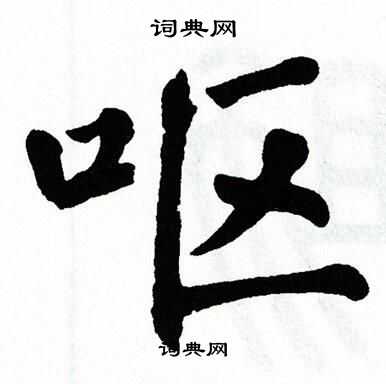 词典网
呕
词典网